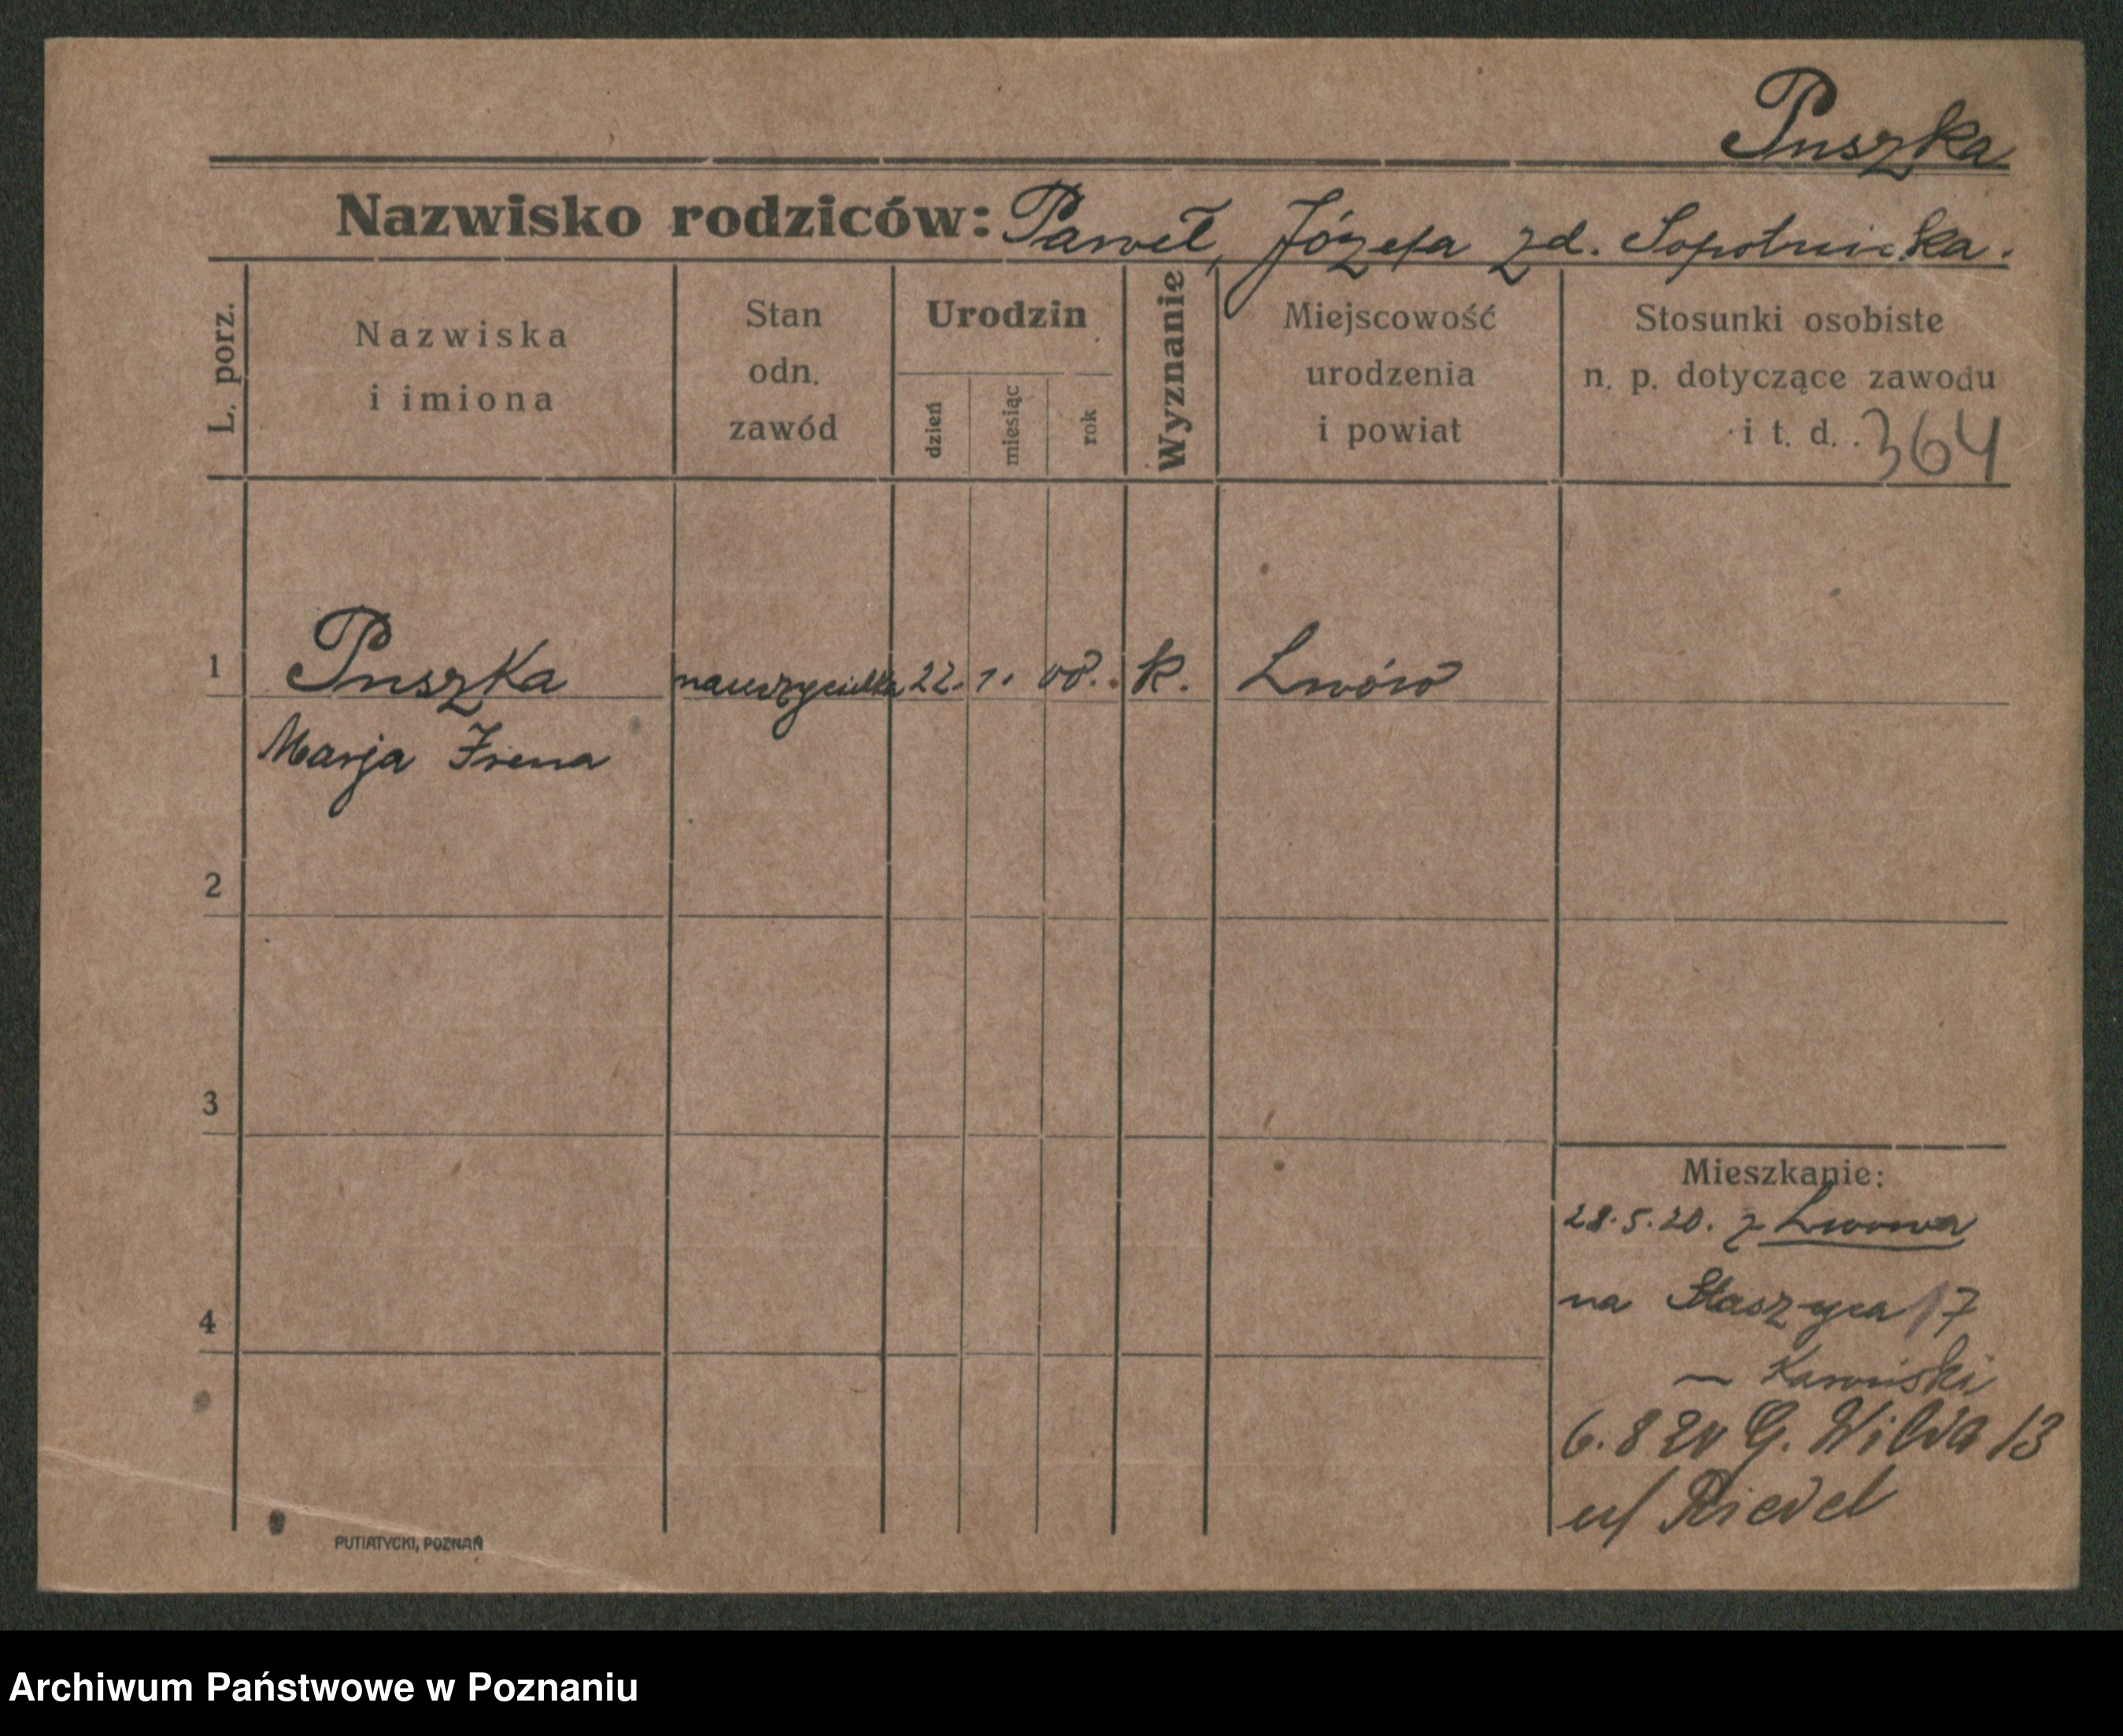 Puszka
Nazwisko rodziców: Paweł, Józefa zd. Sopotnicka.
L. porz.
Nazwiska
i imiona
Stan
odn.
zawód
Urodzin
dzień
miesiąc
rok
Wyznanie
Miejscowość
urodzenia
i powiat
Stosunki osobiste
n. p. dotyczące zawodu
i t. d. 364
1 Puszka nauczycielka 22. 1. 00. k. Lwów
Marja Irena
2
3
4
Mieszkanie:
28.5.20. z Lwowa
na Staszyca 17
— Kamiński
6.8 20 G. Wilda 13
u/ Riedel
PUTIATYCKI, POZNAŃ
Archiwum Państwowe w Poznaniu